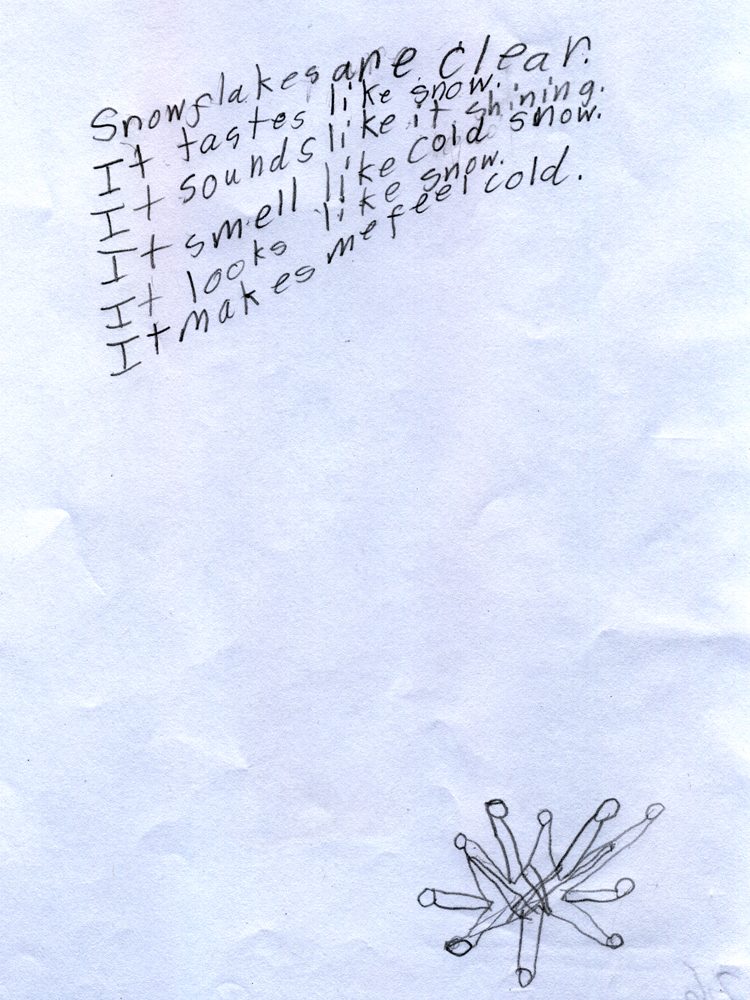 Snowflakes are clear.
It tastes like snow.
It sounds like it shining.
It smell like cold snow.
It looks like snow.
It makes me feel cold.